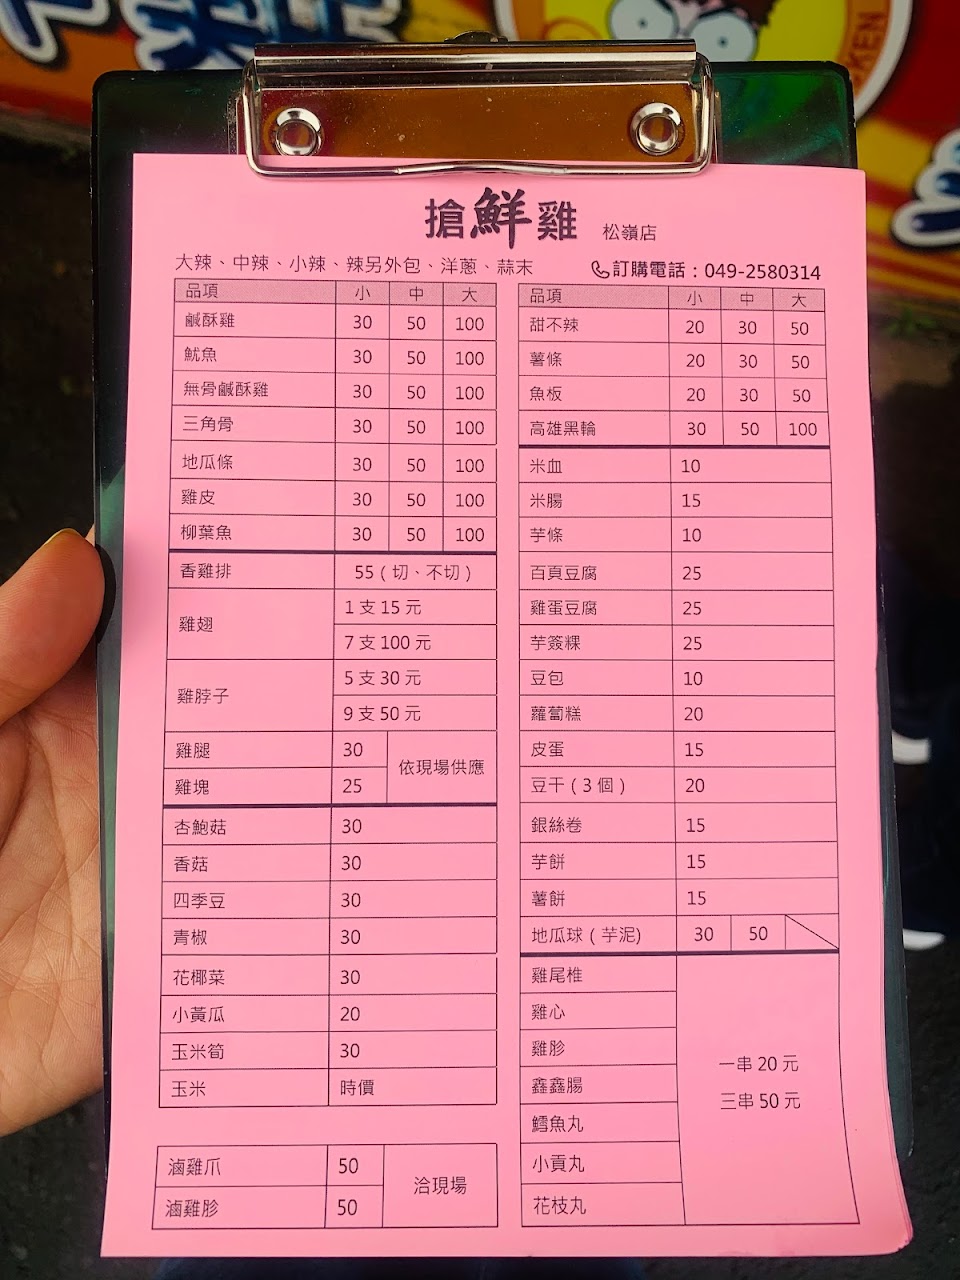 搶鮮雞 松嶺店
大辣、中辣、小辣、辣另外包、洋蔥、蒜末
訂購電話：049-2580314
品項 小 中 大
鹹酥雞 30 50 100
魷魚 30 50 100
無骨鹹酥雞 30 50 100
三角骨 30 50 100
地瓜條 30 50 100
雞皮 30 50 100
柳葉魚 30 50 100
香雞排 55（切、不切）
雞翅 1 支 15 元
7 支 100 元
雞脖子 5 支 30 元
9 支 50 元
雞腿 30 依現場供應
雞塊 25
杏鮑菇 30
香菇 30
四季豆 30
青椒 30
花椰菜 30
小黃瓜 20
玉米筍 30
玉米 時價
滷雞爪 50 洽現場
滷雞胗 50
品項 小 中 大
甜不辣 20 30 50
薯條 20 30 50
魚板 20 30 50
高雄黑輪 30 50 100
米血 10
米腸 15
芋條 10
百頁豆腐 25
雞蛋豆腐 25
芋簽粿 25
豆包 10
蘿蔔糕 20
皮蛋 15
豆干（3 個） 20
銀絲卷 15
芋餅 15
薯餅 15
地瓜球（芋泥) 30 50
雞尾椎
雞心
雞胗
鑫鑫腸
鱈魚丸
小貢丸
花枝丸
一串 20 元
三串 50 元